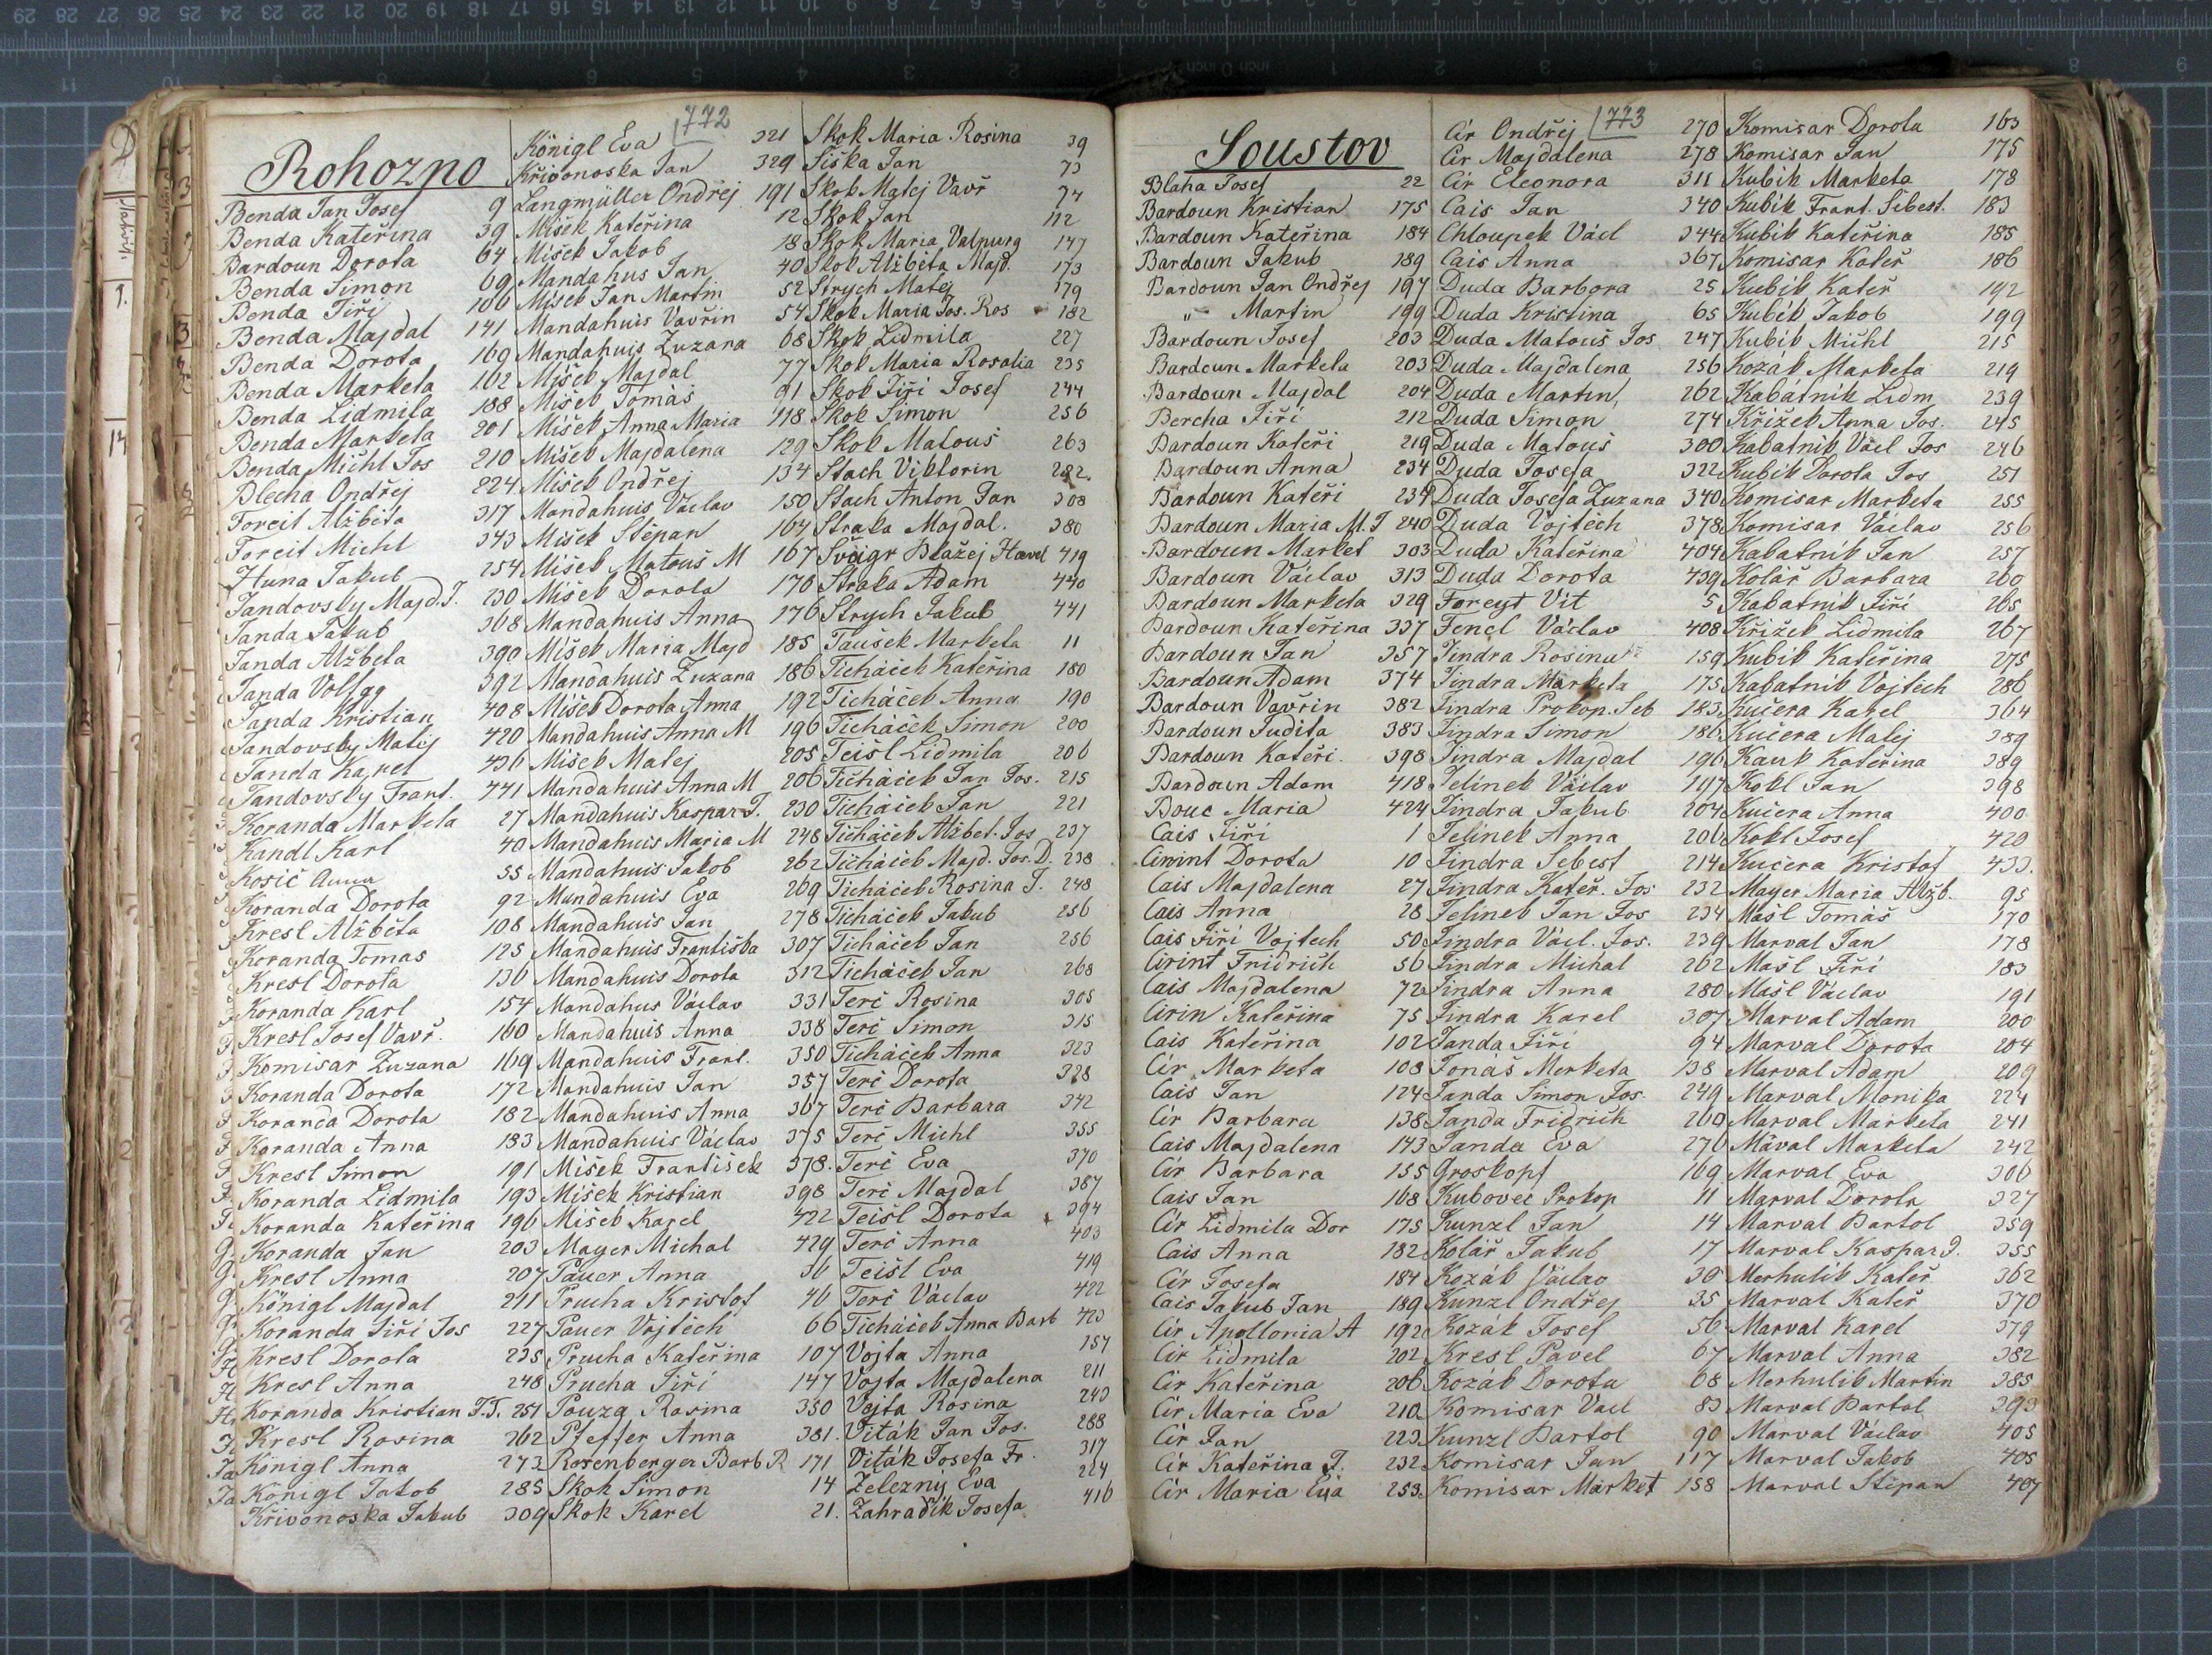 772
Rohozno
Benda Jan Josef 9
Benda Kateřina 39
Bardoun Dorota 64
Benda Šimon 69
Benda Jiří 106
Benda Majdal 141
Benda Dorota 169
Benda Marketa 162
Benda Lidmila 188
Benda Marketa 201
Benda Michl Jos 210
Blecha Ondřej 224
Foreit Alžběta 317
Foreit Michl 343
Huna Jakub 254
Jandovsky Majd. J. 230
Janda Jakub 368
Janda Alžbeta 390
Janda Volfgg 392
Janda Kristian 408
Jandovsky Matěj 420
Janda Karel 436
Jandovsky Frant. 441
Koranda Marketa 27
Kandl Karl 40
Kosič Anna 55
Koranda Dorota 92
Kresl Alžběta 108
Koranda Tomas 125
Kresl Dorota 136
Koranda Karl 154
Kresl Josef Vavř. 160
Komisar Zuzana 169
Koranda Dorota 172
Koranda Dorota 182
Koranda Anna 183
Kresl Simon 191
Koranda Lidmila 193
Koranda Kateřina 196
Koranda Jan 203
Kresl Anna 207
Königl Majdal 211
Koranda Jiří Jos 227
Kresl Dorota 235
Kresl Anna 248
Koranda Kristian J.T. 251
Kresl Rosina 262
Königl Anna 273
Königl Jakob 285
Křivonoska Jakub 309
Königl Eva 321
Křivonoska Jan 329
Langmüller Ondřej 191
Mišek Kateřina 12
Mišek Jakob 18
Mandahus Jan 40
Mišek Jan Martin 52
Mandahuis Vavřin 54
Mandahuis Zuzana 68
Mišek Majdal 77
Mišek Tomáš 91
Mišek Anna Maria 118
Mišek Majdalena 129
Mišek Ondřej 134
Mandahuis Václav 150
Mišek Stěpan 164
Mišek Matouš M 167
Mišek Dorota 170
Mandahuis Anna 176
Mišek Maria Majd 185
Mandahuis Zuzana 186
Mišek Dorota Anna 192
Mandahuis Anna M 196
Mišek Matej 205
Mandahuis Anna M 206
Mandahuis Kaspar J. 230
Mandahuis Maria M 248
Mandahuis Jakob 262
Mandahuis Eva 269
Mandahuis Jan 278
Mandahuis Františka 307
Mandahuis Dorota 312
Mandahus Václav 331
Mandahuis Anna 338
Mandahuis Frant. 350
Mandahuis Jan 357
Mandahuis Anna 367
Mandahuis Václav 375
Mišek František 378.
Mišek Kristian 398
Mišek Karel 422
Mayer Michal 429
Pauer Anna 36
Prucha Kristof 46
Pauer Vojtěch 66
Prucha Kateřina 107
Prucha Jiří 147
Pouza Rosina 330
Pfeffer Anna 381.
Rosenberger Barb R 171
Skok Simon 14
Skok Karel 21.
Skok Maria Rosina 39
Šiška Jan 73
Skok Matej Vavř 74
Skok Jan 112
Skok Maria Valpurg 147
Skok Alžběta Majd. 173
Strych Matej 179
Skok Maria Jos. Ros 182
Skok Lidmila 227
Skok Maria Rosalia 235
Skok Jiří Josef 244
Skok Simon 256
Skok Matouš 263
Stach Viktorin 282.
Stach Anton Jan 308
Straka Majdal. 380
Švägr Blažej Havel 419
Straka Adam 440
Strych Jakub 441
Taušek Marketa 11
Ticháček Kateřina 180
Ticháček Anna 190
Ticháček Simon 200
Teisl Lidmila 206
Ticháček Jan Jos. 215
Ticháček Jan 221
Ticháček Alžbet. Jos 237
Ticháček Majd. Jos. D. 238
Ticháček Rosina J. 248
Ticháček Jakub 256
Ticháček Jan 256
Ticháček Jan 268
Terč Rosina 305
Terč Simon 315
Ticháček Anna 323
Terč Dorota 328
Terč Barbara 342
Terč Michl 355
Terč Eva 370
Terč Majdal 387
Teisl Dorota 394
Terč Anna 403
Teisl Eva 419
Terč Václav 422
Ticháček Anna Barb 423
Vojta Anna 157
Vojta Majdalena 211
Vojta Rosina 243
Viták Jan Jos. 288
Viták Josefa Fr. 317
Železný Eva 224
Zahradik Josefa 416
773
Soustov
Blaha Josef 22
Bardoun Kristian 175
Bardoun Kateřina 184
Bardoun Jakub 189
Bardoun Jan Ondřej 197
" Martin 199
Bardoun Josef 203
Bardoun Marketa 203
Bardoun Majdal 204
Bercha Jiří 212
Bardoun Kateři 219
Bardoun Anna 234
Bardoun Kateři 234
Bardoun Maria M. J 240
Bardoun Market 303
Bardoun Václav 313
Bardoun Marketa 329
Bardoun Kateřina 337
Bardoun Jan 357
Bardoun Adam 374
Bardoun Vavřin 382
Bardoun Judita 383
Bardoun Kateři. 398
Bardoun Adam 418
Bouc Maria 424
Cais Jiří 1
Cirint Dorota 10
Cais Majdalena 27
Cais Anna 28
Cais Jiří Vojtech 50
Cirint Fridrich 56
Cais Majdalena 72
Cirin Kateřina 75
Cais Kateřina 102
Cír Marketa 108
Cais Jan 124
Cír Barbara 138
Cais Majdalena 143
Cír Barbara 155
Cais Jan 168
Cír Lidmila Dor 175
Cais Anna 182
Cír Josefa 184
Cais Jakub Jan 189
Cír Apollonia A 192
Cír Lidmila 202
Cír Kateřina 206
Cír Maria Eva 210
Cír Jan 223
Cír Kateřina J. 232
Cír Maria Eva 253
Cír Ondřej 270
Cír Majdalena 278
Cír Eleonora 311
Cais Jan 340
Chloupek Václ 344
Cais Anna 367
Duda Barbora 25
Duda Kristina 65
Duda Matouš Jos 247
Duda Majdalena 256
Duda Martin 262
Duda Simon 274
Duda Matouš 300
Duda Josefa 322
Duda Josefa Zuzana 340
Duda Vojtěch 378
Duda Kateřina 404
Duda Dorota 439
Foreyt Vit 5
Fencl Václav 408
Jindra Rosina 159
Jindra Marketa 175
Jindra Prokop. Seb 183
Jindra Simon 186
Jindra Majdal 196
Jelinek Václav 197
Jindra Jakub 204
Jelinek Anna 206
Jindra Sebest 214
Jindra Kateř. Jos 232
Jelinek Jan Jos 234
Jindra Václ. Jos. 239
Jindra Michal 262
Jindra Anna 280
Jindra Karel 307
Janda Jiří 94
Jonáš Merketa 138
Janda Simon Jos. 249
Janda Fridrich 260
Janda Eva 276
Groskopf 169
Kubovec Prokop 11
Kunzl Jan 14
Kolář Jakub 17
Kozák Václav 30
Kunzl Ondřej 35
Kozák Josef 56
Kresl Pavel 67
Kozák Dorota 68
Komisar Václ 83
Kunzl Bartol 90
Komisar Jan 117
Komisar Market 158
Komisar Dorota 163
Komisar Jan 175
Kubik Marketa 178
Kubik Frant. Šebest. 183
Kubik Kateřina 185
Komisar Kateř 186
Kubik Kateř 192
Kubik Jakob 199
Kubik Michl 215
Kozák Marketa 219
Kabátnik Lidm 239
Křižek Anna Jos. 245
Kabatnik Václ Jos 246
Kubik Dorota Jos 251
Komisar Marketa 255
Komisar Václav 256
Kabatnik Jan 257
Kolář Barbara 260
Kabatnik Jiří 265
Křižek Lidmila 267
Kubik Kateřina 275
Kabatnik Vojtěch 286
Kučera Karel 364
Kučera Matej 389
Kauk Kateřina 389
Kokl Jan 398
Kučera Anna 400
Kokl Josef 420
Kučera Kristof 433.
Mayer Maria Alžb. 95
Mašl Tomáš 170
Marval Jan 178
Mašl Jiří 183
Mašl Václav 191
Marval Adam 200
Marval Dorota 204
Marval Adam 209
Marval Monika 224
Marval Marketa 241
Màval Marketa 242
Marval Eva 306
Marval Dorota 327
Marval Bartol 359
Marval Kaspar J. 355
Merhulik Kateř 362
Marval Kateř 370
Marval Karel 379
Marval Anna 382
Merhulik Martin 385
Marval Bartol 393
Marval Václav 405
Marval Jakob 405
Marval Stěpan 407